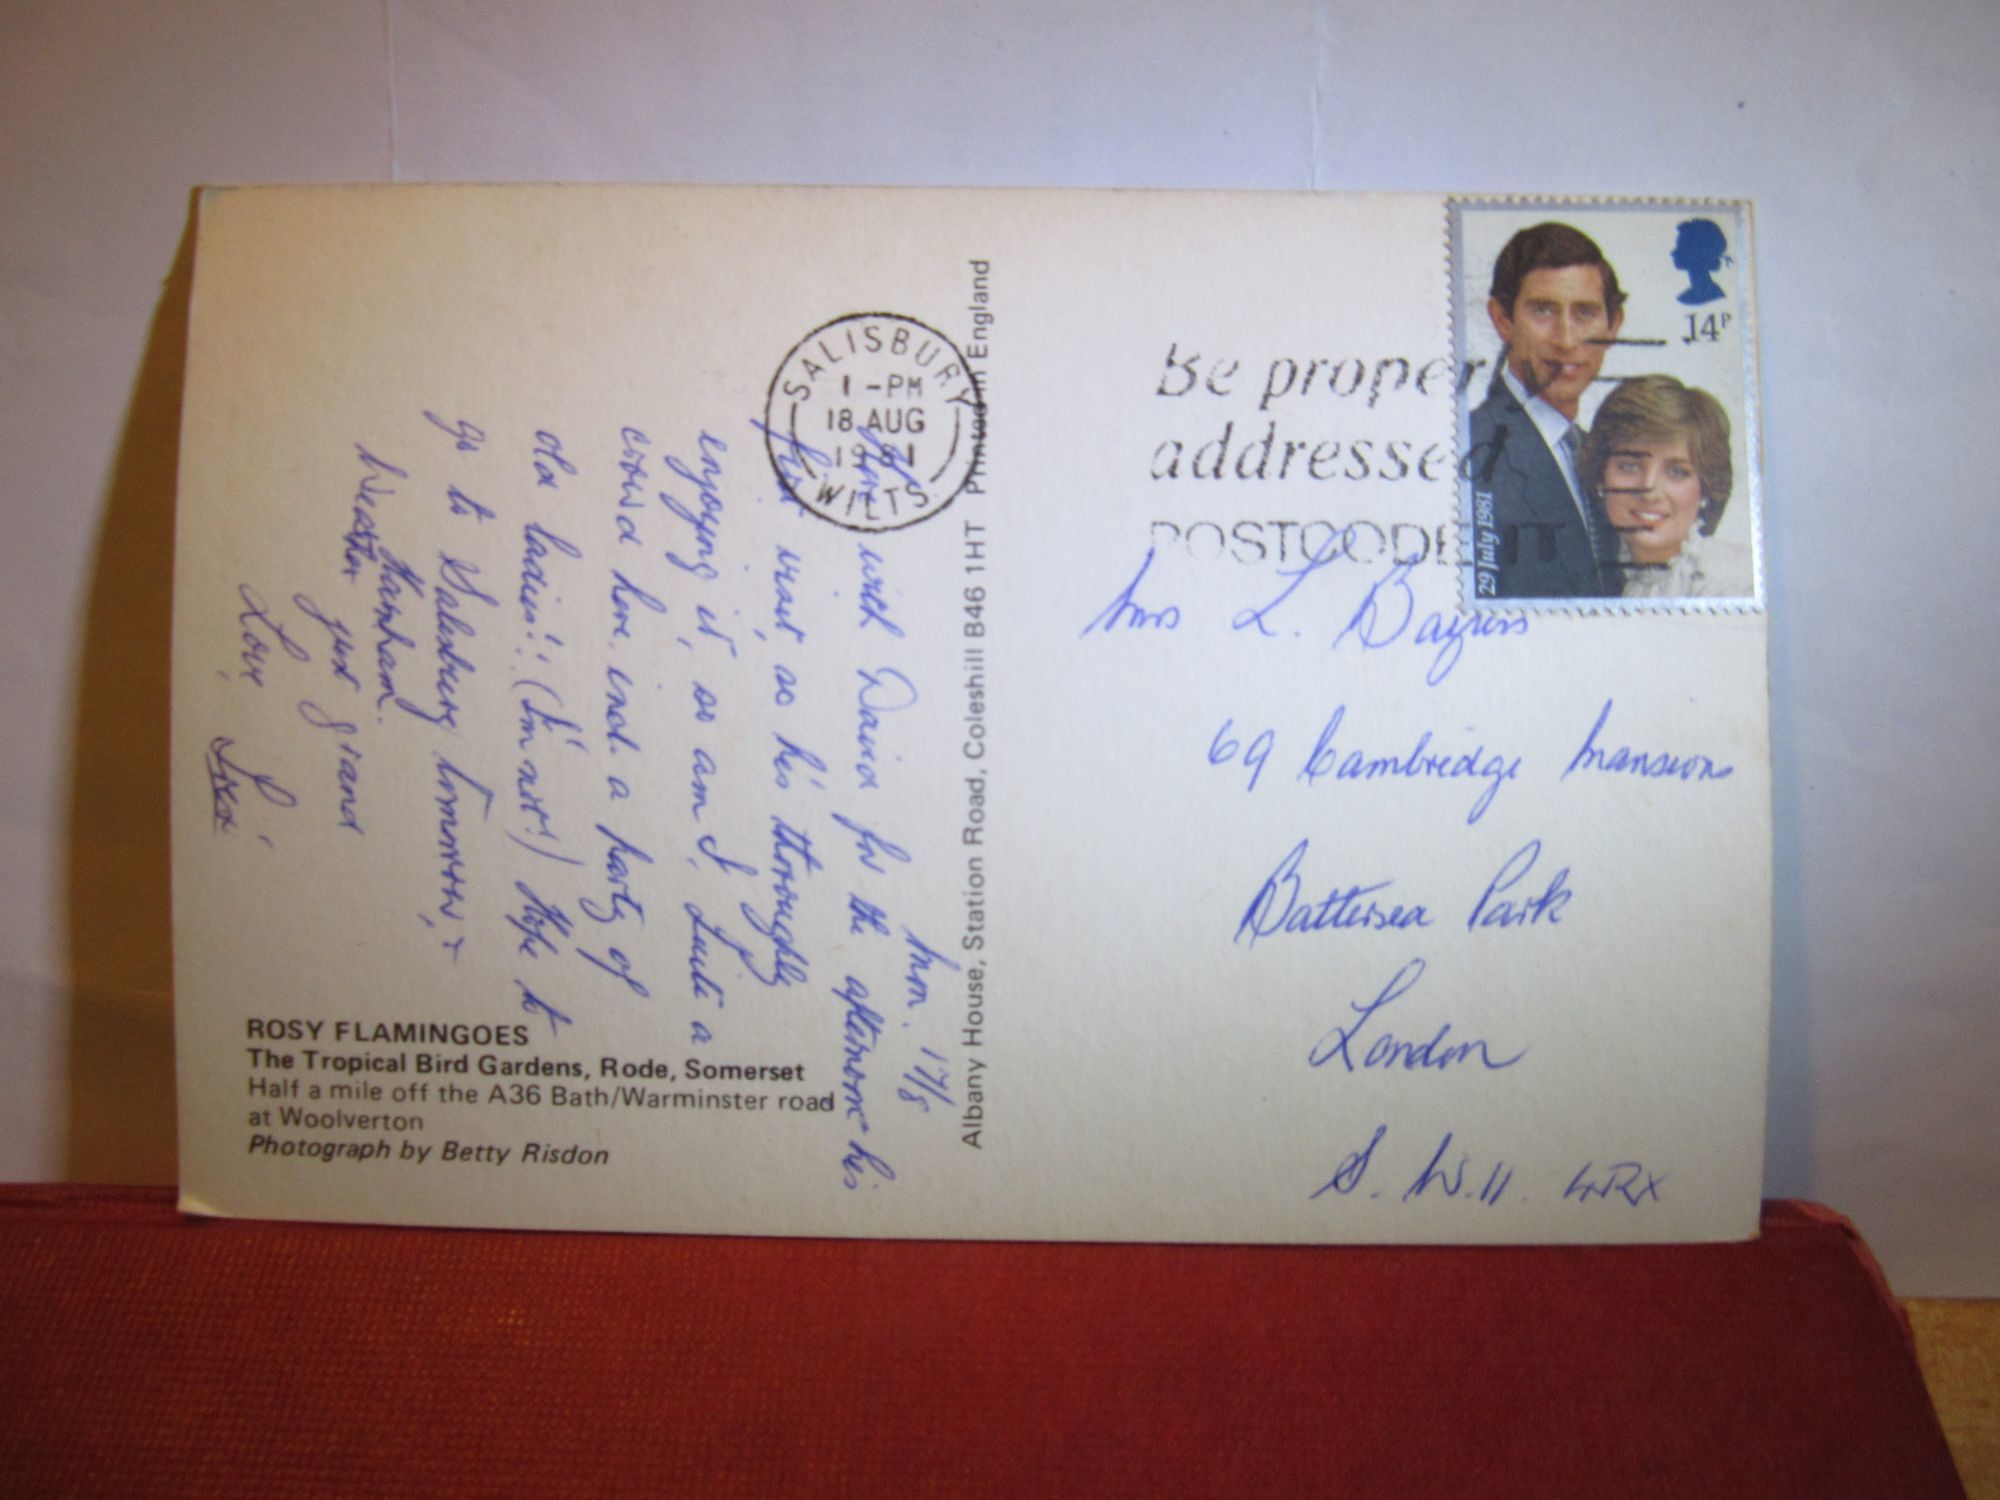 Mon. 17/8
with David for the afternoon his
first visit, as he's thoroughly
enjoying it, so am I. Quite a
crowd here, incl. a party of
old ladies!! (I'm not!) Hope to
go to Salisbury tomorrow, +
Harnham.
Weather just grand
Love,
ROSY FLAMINGOES
The Tropical Bird Gardens, Rode, Somerset
Half a mile off the A36 Bath/Warminster road
at Woolverton
Photograph by Betty Risdon
SALISBURY
1 - PM
18 AUG
1981
WILTS
Albany House, Station Road, Coleshill B46 1HT Printed in England
Be properly
addressed
POSTCODE IT
14P
29 July 1981
Mrs L.
69 Cambridge Mansions
Battersea Park
London
S.W.11. 4RX